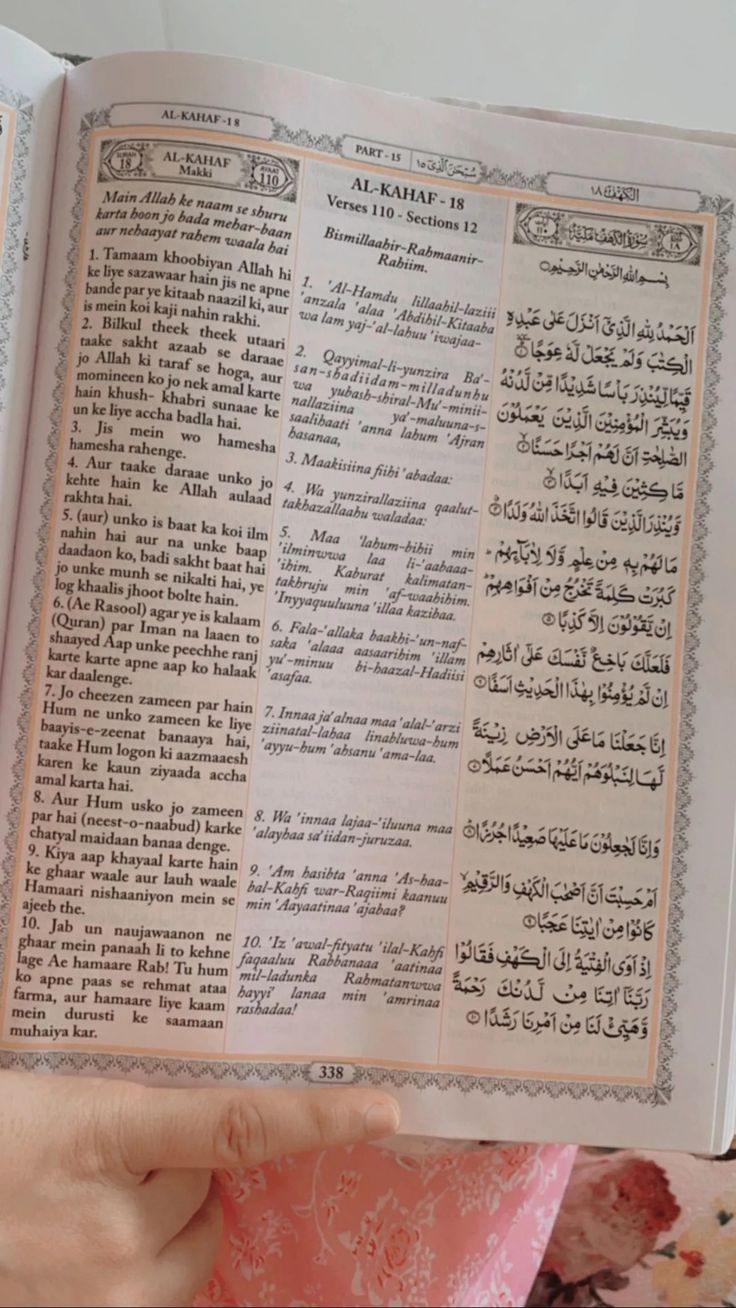 AL-KAHAF -18
PART - 15
سُبْحٰنَ الَّذِیْۤ ١٥
الكهف ١٨
SURAH 18
AL-KAHAF
Makki
AYAAT 110
Main Allah ke naam se shuru
karta hoon jo bada mehar-baan
aur nehaayat rahem waala hai
1. Tamaam khoobiyan Allah hi
ke liye sazawaar hain jis ne apne
bande par ye kitaab naazil ki, aur
is mein koi kaji nahin rakhi.
2. Bilkul theek theek utaari
taake sakht azaab se daraae
jo Allah ki taraf se hoga, aur
momineen ko jo nek amal karte
hain khush- khabri sunaae ke
un ke liye accha badla hai.
3. Jis mein wo hamesha
hamesha rahenge.
4. Aur taake daraae unko jo
kehte hain ke Allah aulaad
rakhta hai.
5. (aur) unko is baat ka koi ilm
nahin hai aur na unke baap
daadaon ko, badi sakht baat hai
jo unke munh se nikalti hai, ye
log khaalis jhoot bolte hain.
6. (Ae Rasool) agar ye is kalaam
(Quran) par Iman na laaen to
shaayed Aap unke peechhe ranj
karte karte apne aap ko halaak
kar daalenge.
7. Jo cheezen zameen par hain
Hum ne unko zameen ke liye
baayis-e-zeenat banaaya hai,
taake Hum logon ki aazmaaesh
karen ke kaun ziyaada accha
amal karta hai.
8. Aur Hum usko jo zameen
par hai (neest-o-naabud) karke
chatyal maidaan banaa denge.
9. Kiya aap khayaal karte hain
ke ghaar waale aur lauh waale
Hamaari nishaaniyon mein se
ajeeb the.
10. Jab un naujawaanon ne
ghaar mein panaah li to kehne
lage Ae hamaare Rab! Tu hum
ko apne paas se rehmat ataa
farma, aur hamaare liye kaam
mein durusti ke saamaan
muhaiya kar.
AL-KAHAF - 18
Verses 110 - Sections 12
Bismillaahir-Rahmaanir-
Rahiim.
1. 'Al-Hamdu lillaahil-laziii
'anzala 'alaa 'Abdihil-Kitaaba
wa lam yaj-'al-lahuu 'iwajaa-
2. Qayyimal-li-yunzira Ba'-
san-shadiidam-milladunhu
wa yubash-shiral-Mu'-minii-
nallaziina ya'-maluuna-s-
saalihaati 'anna lahum 'Ajran
hasanaa,
3. Maakisiina fiihi 'abadaa:
4. Wa yunzirallaziina qaalut-
takhazallaahu waladaa:
5. Maa 'lahum-bihii min
'ilminwwa laa li-'aabaaa-
'ihim. Kaburat kalimatan-
takhruju min 'af-waahihim.
'Inyyaquuluuna 'illaa kazibaa.
6. Fala-'allaka baakhi-'un-naf-
saka 'alaaa aasaarihim 'illam
yu'-minuu bi-haazal-Hadiisi
'asafaa.
7. Innaa ja'alnaa maa 'alal-'arzi
ziinatal-lahaa linabluwa-hum
'ayyu-hum 'ahsanu 'ama-laa.
8. Wa 'innaa lajaa-'iluuna maa
'alayhaa sa'iidan-juruzaa.
9. 'Am hasibta 'anna 'As-haa-
bal-Kahfi war-Raqiimi kaanuu
min 'Aayaatinaa 'ajabaa?
10. 'Iz 'awal-fityatu 'ilal-Kahfi
faqaaluu Rabbanaaa 'aatinaa
mil-ladunka Rahmatanwwa
hayyi' lanaa min 'amrinaa
rashadaa!
سُوْرَةُ الْكَهْفِ مَكِّيَّةٌ
بِسْمِ اللهِ الرَّحْمٰنِ الرَّحِيْمِ
اَلْحَمْدُ لِلّٰهِ الَّذِيْۤ اَنْزَلَ عَلٰى عَبْدِهِ
الْكِتٰبَ وَلَمْ يَجْعَلْ لَّهٗ عِوَجًا ۱
قَيِّمًا لِّيُنْذِرَ بَاْسًا شَدِيْدًا مِّنْ لَّدُنْهُ
وَيُبَشِّرَ الْمُؤْمِنِيْنَ الَّذِيْنَ يَعْمَلُوْنَ
الصّٰلِحٰتِ اَنَّ لَهُمْ اَجْرًا حَسَنًا ۲
مَّا كِثِيْنَ فِيْهِ اَبَدًا ۳
وَّيُنْذِرَ الَّذِيْنَ قَالُوا اتَّخَذَ اللهُ وَلَدًا ۴
مَا لَهُمْ بِهٖ مِنْ عِلْمٍ وَّلَا لِاٰبَآئِهِمْ
كَبُرَتْ كَلِمَةً تَخْرُجُ مِنْ اَفْوَاهِهِمْ
اِنْ يَّقُوْلُوْنَ اِلَّا كَذِبًا ۵
فَلَعَلَّكَ بَاخِعٌ نَّفْسَكَ عَلٰۤى اٰثَارِهِمْ
اِنْ لَّمْ يُؤْمِنُوْا بِهٰذَا الْحَدِيْثِ اَسَفًا ۶
اِنَّا جَعَلْنَا مَا عَلَى الْاَرْضِ زِيْنَةً
لَّهَا لِنَبْلُوَهُمْ اَيُّهُمْ اَحْسَنُ عَمَلًا ۷
وَاِنَّا لَجٰعِلُوْنَ مَا عَلَيْهَا صَعِيْدًا جُرُزًا ۸
اَمْ حَسِبْتَ اَنَّ اَصْحٰبَ الْكَهْفِ وَالرَّقِيْمِ
كَانُوْا مِنْ اٰيٰتِنَا عَجَبًا ۹
اِذْ اَوَى الْفِتْيَةُ اِلَى الْكَهْفِ فَقَالُوْا
رَبَّنَاۤ اٰتِنَا مِنْ لَّدُنْكَ رَحْمَةً
وَّهَيِّئْ لَنَا مِنْ اَمْرِنَا رَشَدًا ۱۰
338